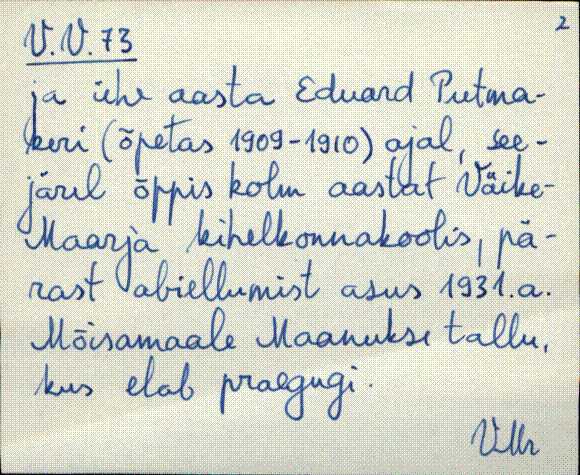 2
V.V.73
ja ühe aasta Eduard Putma-
keri (õpetas 1909-1910) ajal, see-
järel õppis kolm aastat Väike-
Maarja kihelkonnakoolis, pä-
rast abiellumist asus 1931.a.
Mõisamaale Maanukse tallu,
kus elab praegugi.